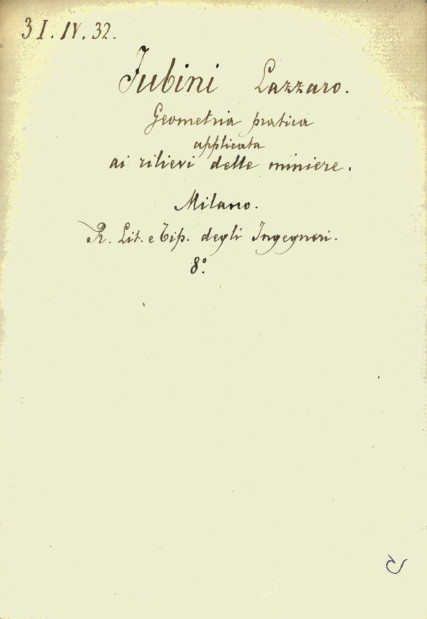 31.IV.32.
Fubini Lazzaro.
Geometria pratica
applicata
ai rilievi delle miniere.
Milano.
R. Lit. e Tip. degli Ingegneri.
8°.